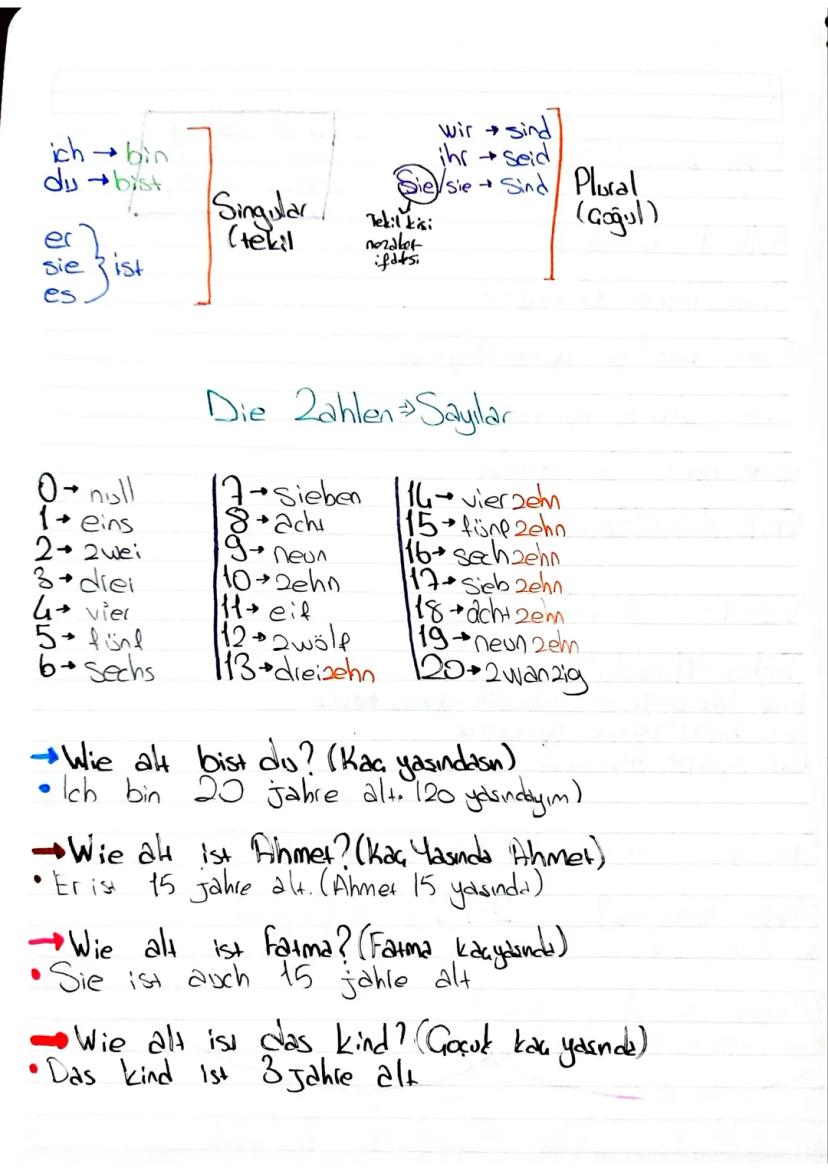 ich → bin
du → bist
er
sie } ist
es
Singular
(tekil
wir → sind
ihr → seid
Sie/sie → sind
Tekil kişi
nezaket
ifadesi
Plural
(Çoğul)
Die Zahlen ⇒ Sayılar
0 → null
1 → eins
2 → zwei
3 → drei
4 → vier
5 → fünf
6 → sechs
7 → sieben
8 → acht
9 → neun
10 → zehn
11 → elf
12 → zwölf
13 → dreizehn
14 → vierzehn
15 → fünfzehn
16 → sechzehn
17 → siebzehn
18 → achtzehn
19 → neunzehn
20 → zwanzig
→ Wie alt bist du? (Kaç yaşındasın)
• Ich bin 20 jahre alt. (20 yaşındayım)
→ Wie alt ist Ahmet? (Kaç Yaşında Ahmet)
• Er ist 15 jahre alt. (Ahmet 15 yaşında)
→ Wie alt ist Fatma? (Fatma kaç yaşında)
• Sie ist auch 15 jahre alt
→ Wie alt ist das kind? (Çocuk kaç yaşında)
• Das kind ist 3 jahre alt